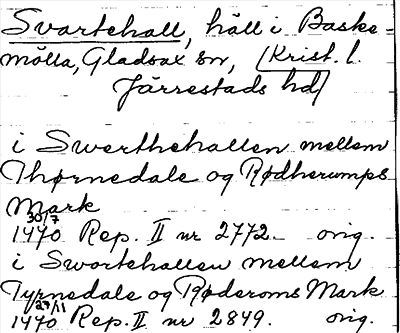 Svartehall, häll i Baske-
mölla, Gladsax sn, (Krist. l.
Järrestads hd)
i Swerthehallen mellem
Thørnedale og Rødherumps
Mark
30/7
1470 Rep. II nr 2772. orig.
i Swortehallen mellem
Tyrnedale og Røderoms Mark
29/11
1470 Rep. II nr 2849. orig.